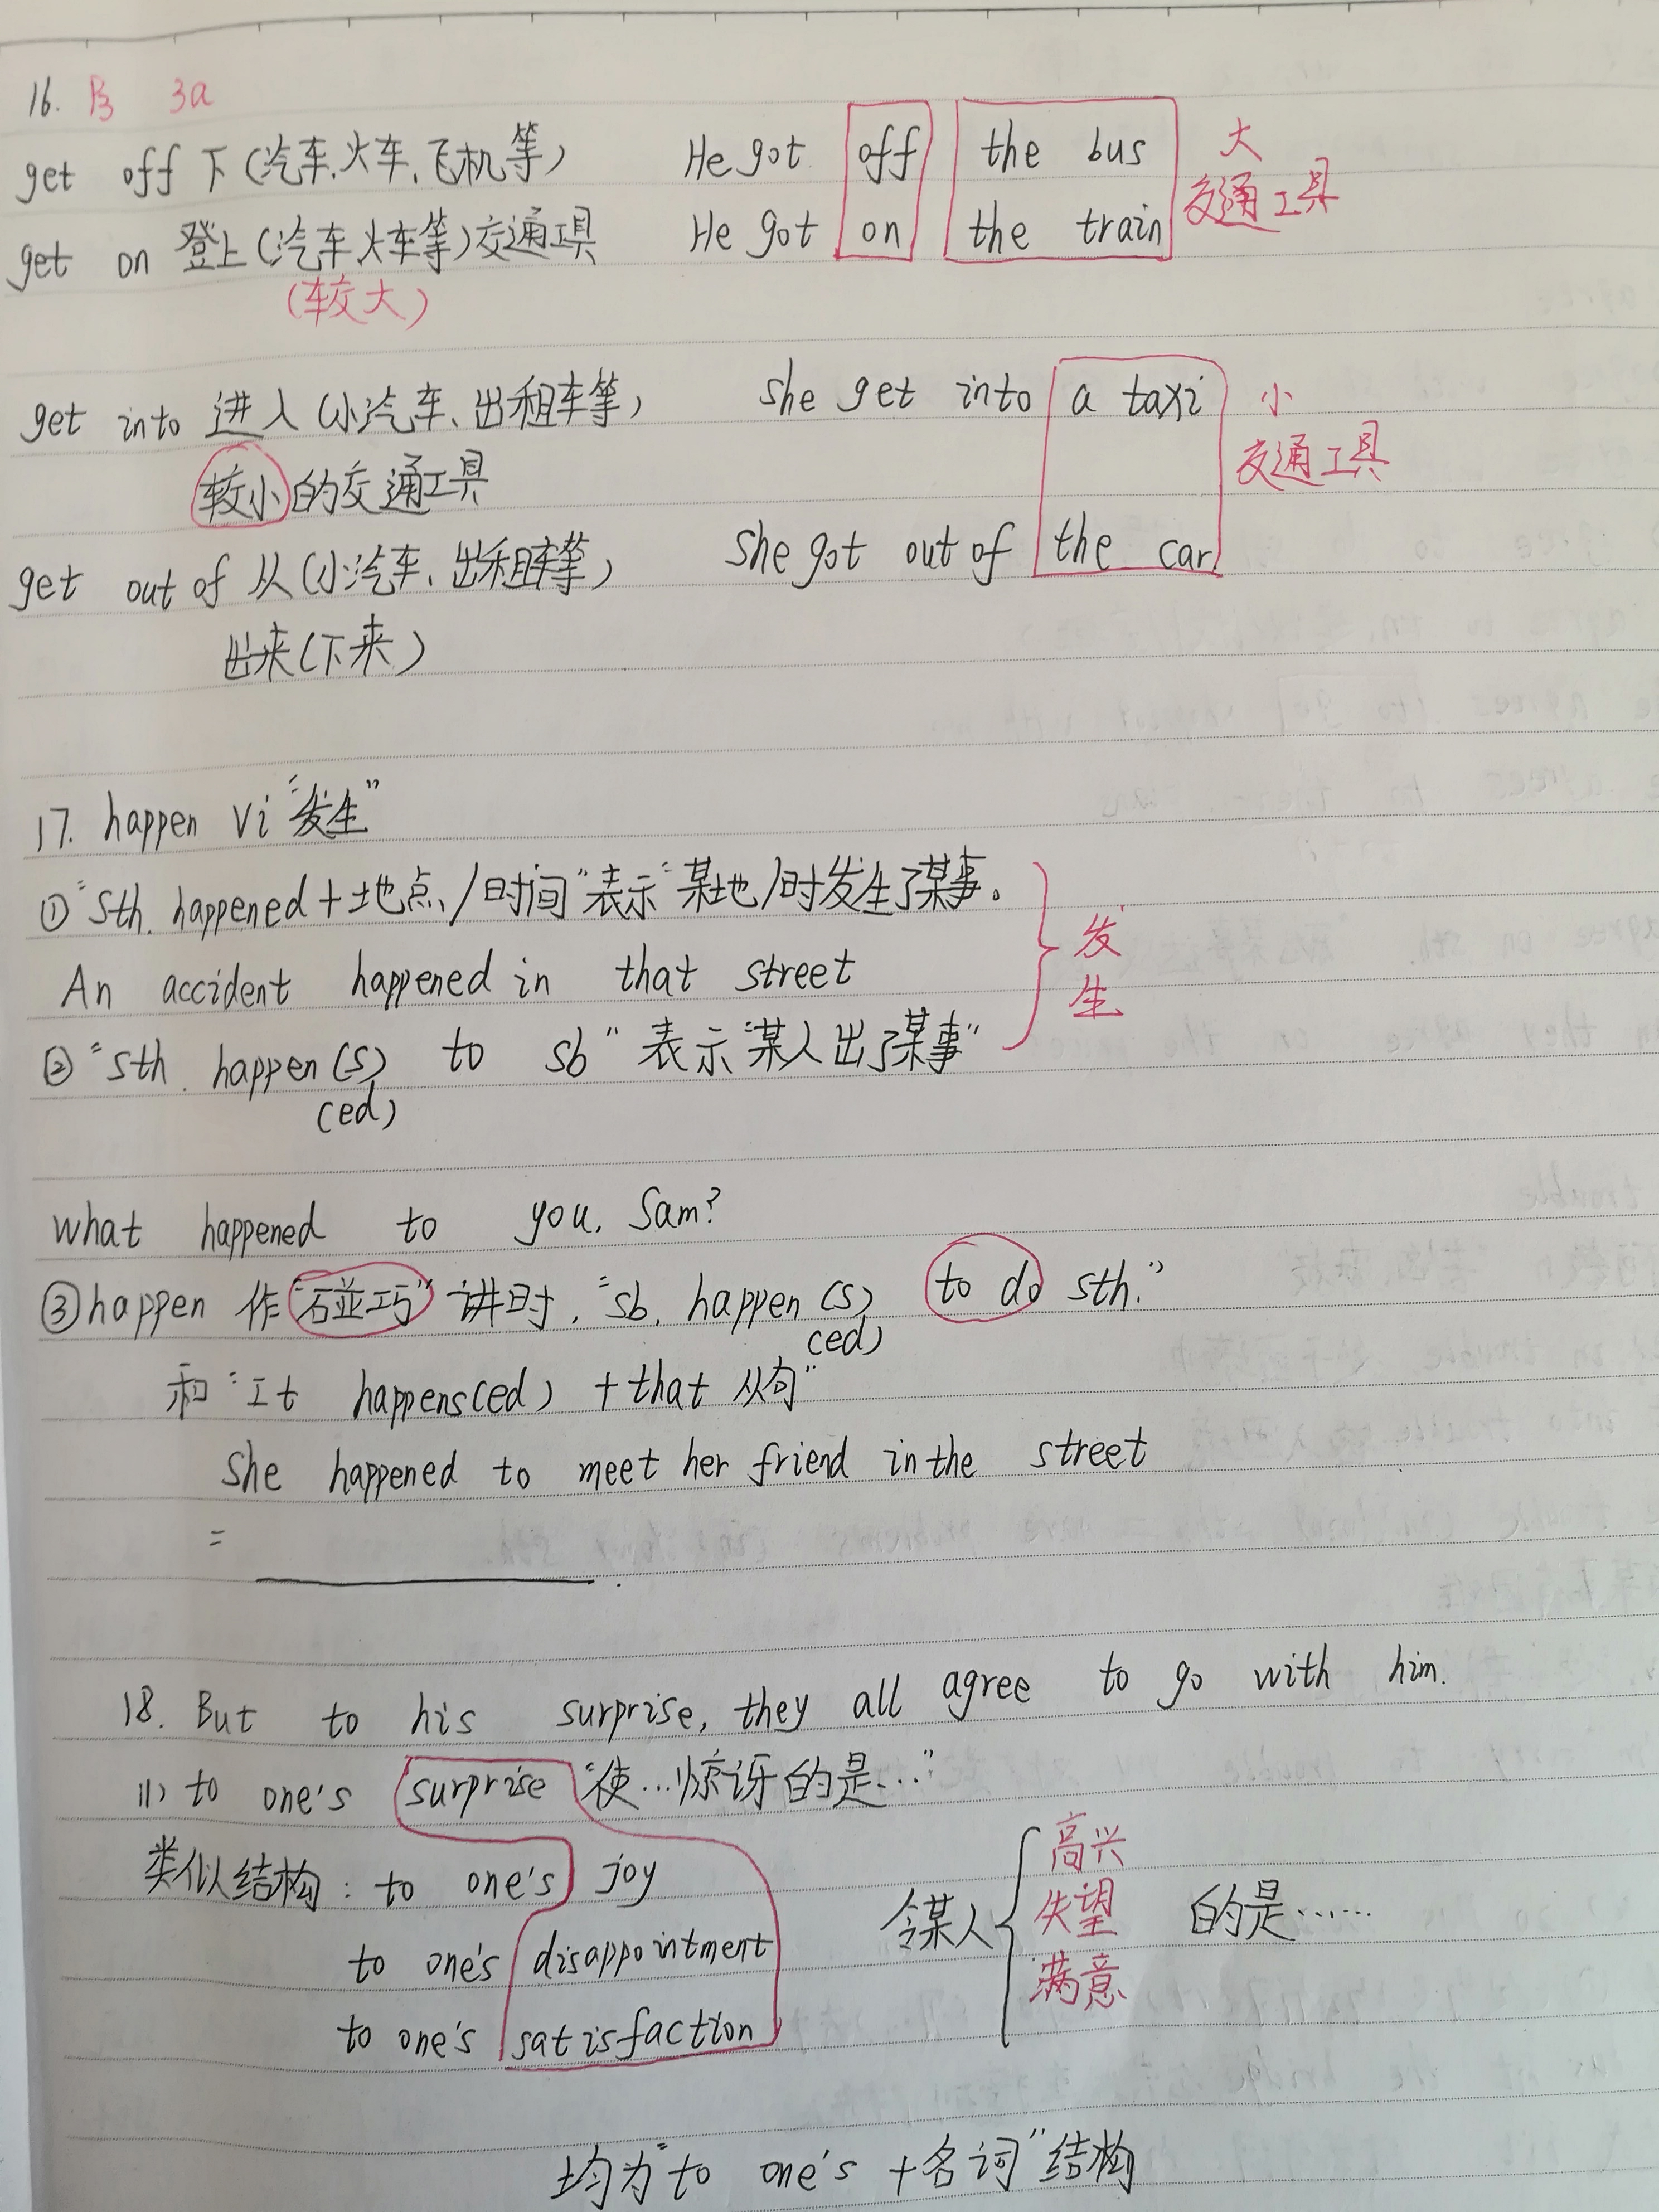 16. P3 3a
get off 下(汽车、火车、飞机等) He got off the bus 大
get on 登上(汽车火车等)交通工具 He got on the train 交通工具
(较大)
get into 进入(小汽车、出租车等) She get into a taxi 小
较小的交通工具 交通工具
get out of 从(小汽车、出租车等) She got out of the car
出来(下来)
17. happen vi "发生"
① "Sth. happened + 地点/时间" 表示 "某地/时发生了某事。
An accident happened in that street 发生
② "Sth. happen(s) to sb" 表示 "某人出了某事"
(ed)
What happened to you, Sam?
③ happen 作 "碰巧" 讲时, "sb. happen(s) to do sth."
(ed)
和 "It happens(ed) + that 从句"
She happened to meet her friend in the street
= ________.
18. But to his surprise, they all agree to go with him.
(1) to one's surprise "使...惊讶的是..."
类似结构: to one's joy 高兴
to one's disappointment 令某人 失望 的是......
to one's satisfaction 满意
均为 "to one's + 名词" 结构